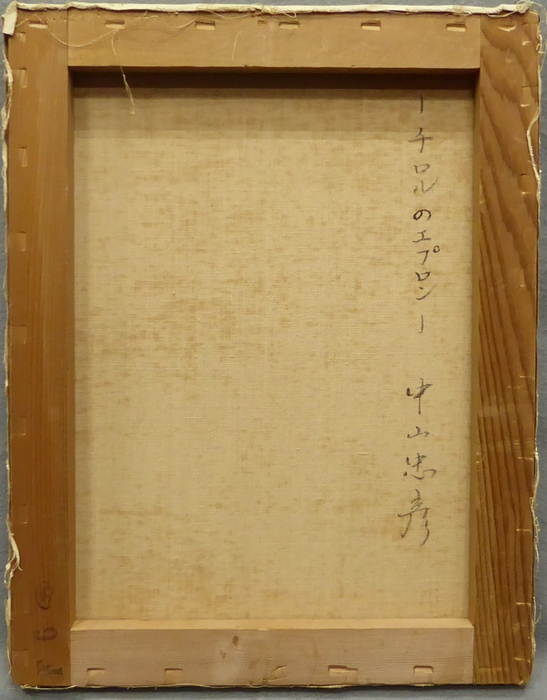 ーチロルのエプロンー 中山忠彦
6